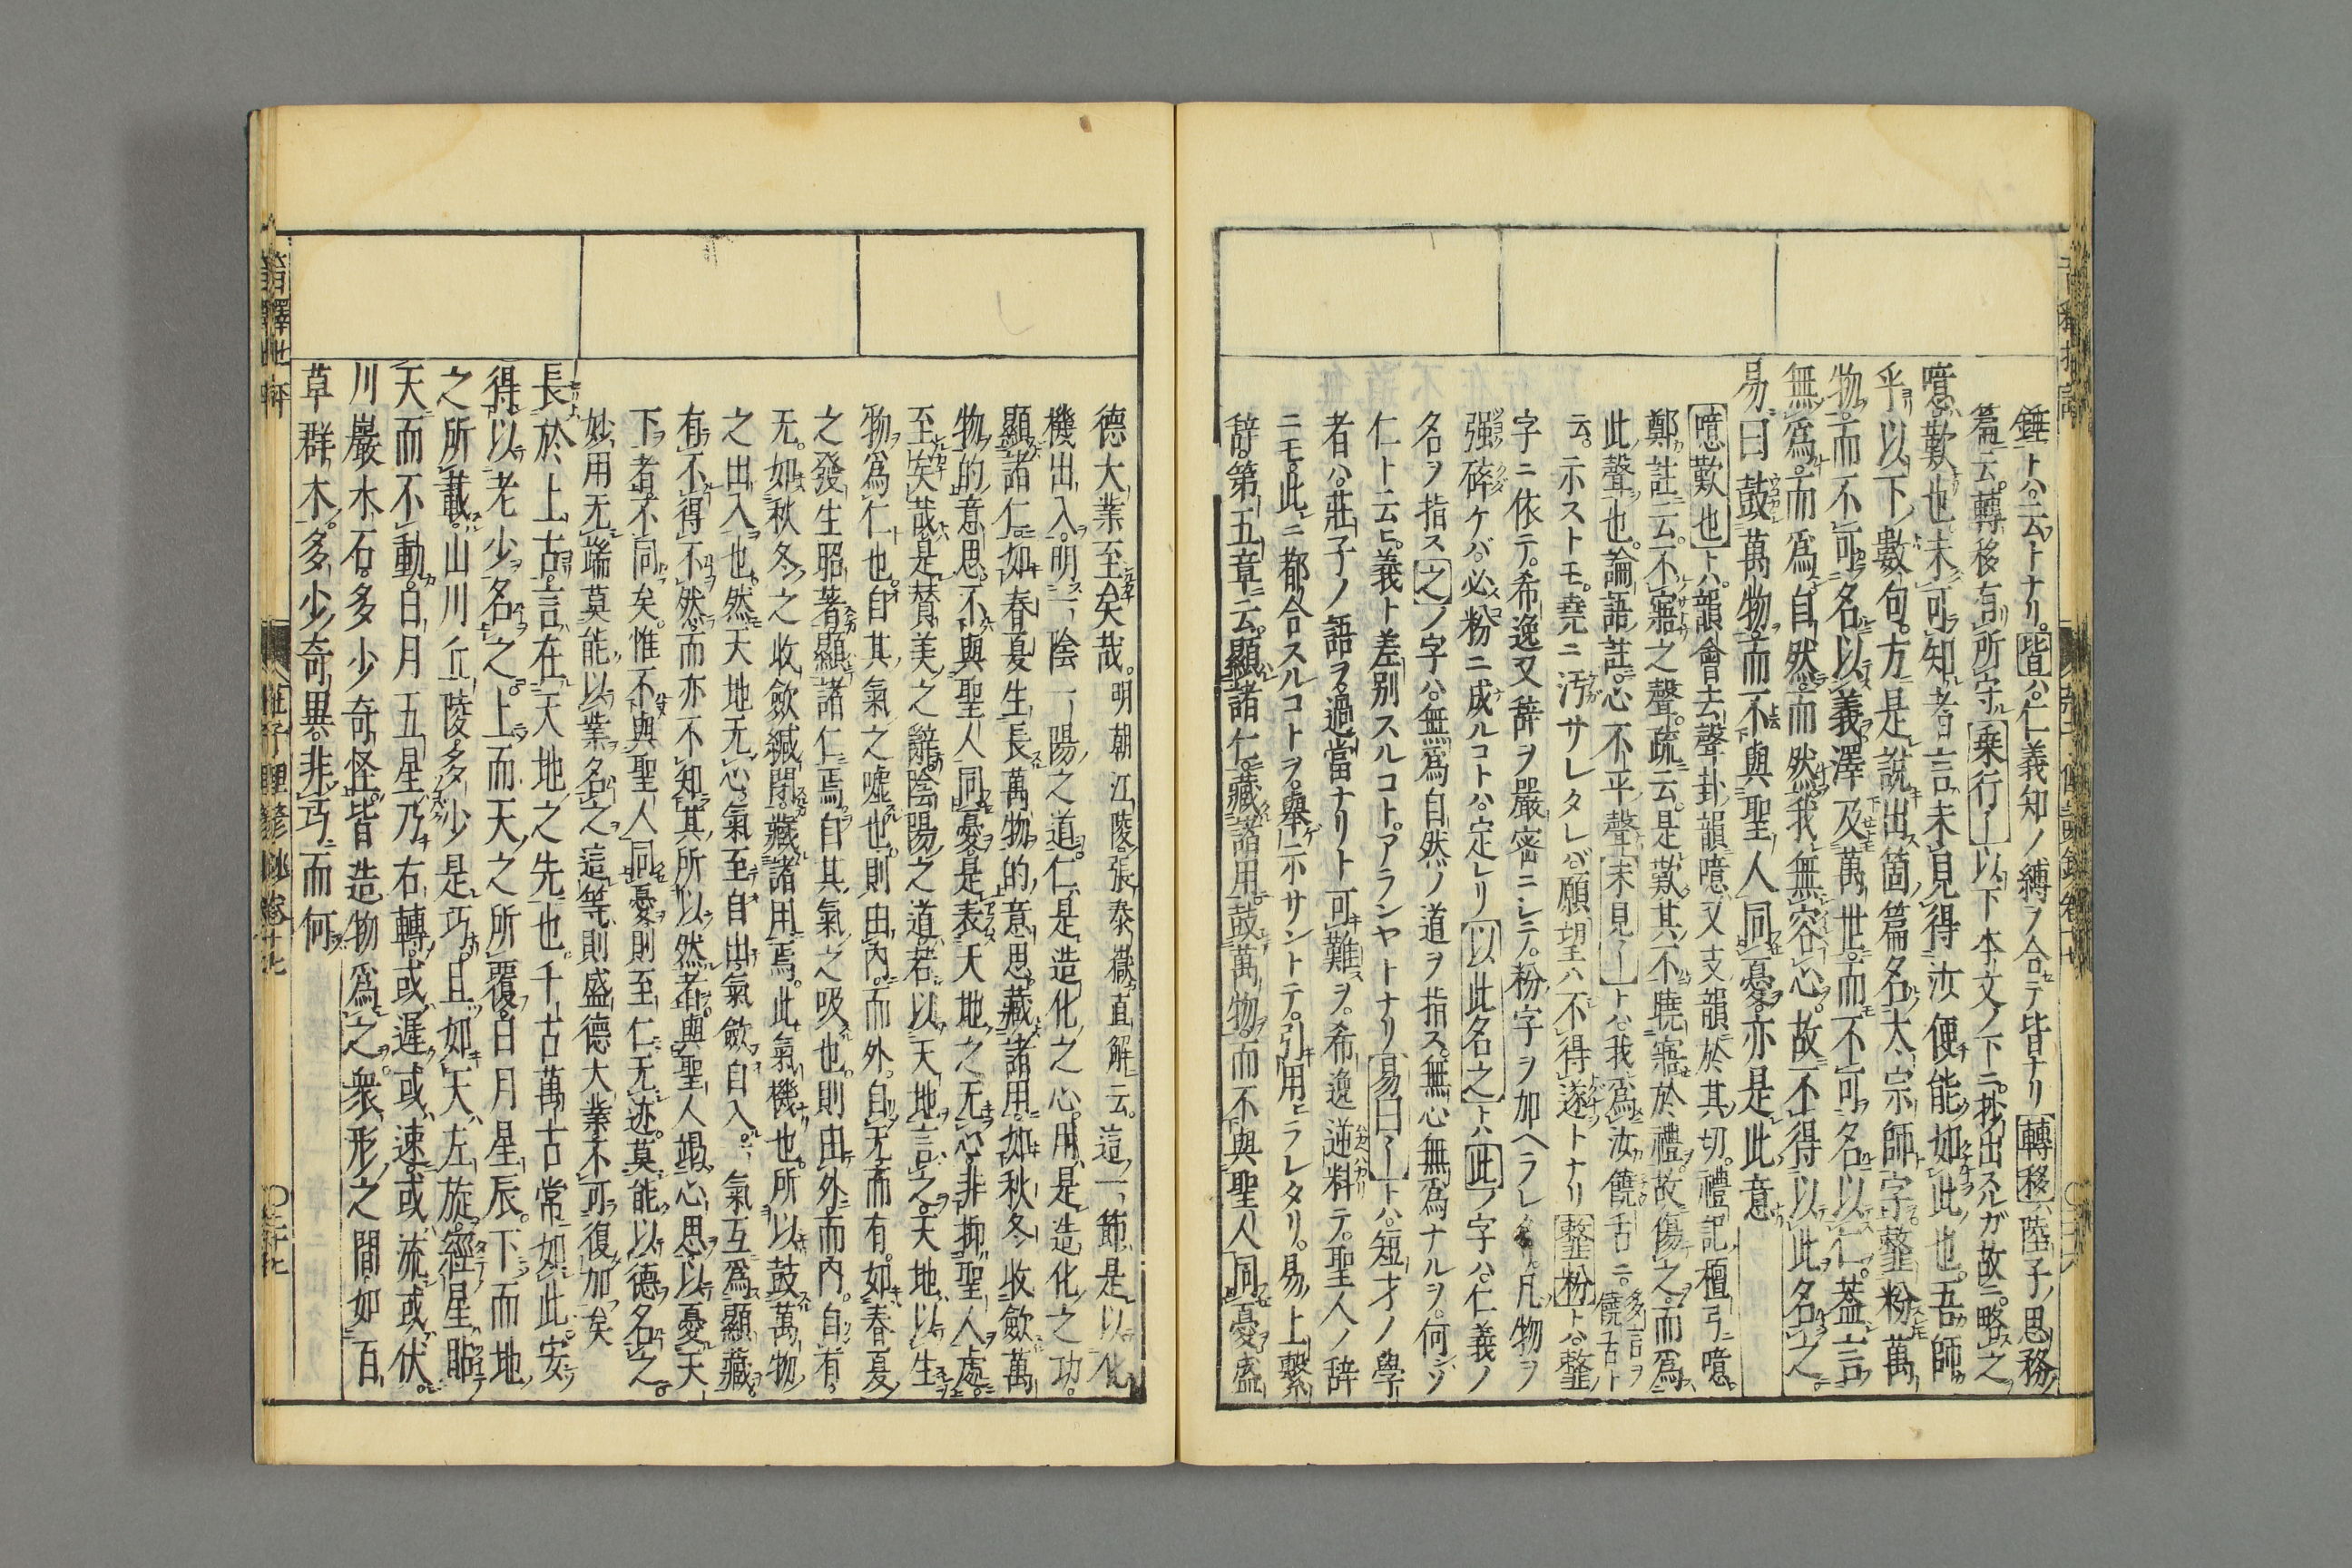 錘トハ云トナリ皆ハ仁義知ノ縛ヲ合テ皆ナリ轉移ハ陸子ノ思務ノ
篇云轉移有所守乗行〱以下本文ノ下ニ抄出スルガ故ニ略之
噫歎也未可知者言未見得汝便能如此也吾師
乎以下數句方是說出箇篇名大宗師字韲粉萬
物而不可名以義澤及萬世而不可名以仁蓋言
無爲而爲自然而然我無容心故不得以此名之
易曰鼓萬物而不與聖人同憂亦是此意
噫歎也トハ韻會去聲卦韻噫又支韻於其切禮記檀弓噫
鄭註云不寤之聲疏云是歎其不曉寤於禮故傷之而爲
此聲也論語註心不平聲未見〱トハ我爲汝饒舌ニ多言ヲ饒舌ト
云示ストモ堯ニ汚サレタレバ願望ハ不得遂トナリ韲粉トハ韲
字ニ依テ希逸又辞ヲ嚴密ニシテ粉字ヲ加ヘラレタリ凡物ヲ
强碎ケバ必粉ニ成ルコトハ定レリ以此名之トハ此ノ字ハ仁義ノ
名ヲ指ス之ノ字ハ無爲自然ノ道ヲ指ス無心無爲ナルヲ何ソ
仁ト云ヒ義ト差別スルコトアランヤトナリ易曰〱トハ短才ノ學
者ハ莊子ノ語ヲ過當ナリト可難ヲ希逸逆料テ聖人ノ辞
ニモ此ニ都合スルコトヲ舉ゲ示サントテ引用ヒラレタリ易ノ上繫
辞第五章云顯諸仁藏諸用鼓萬物而不與聖人同憂盛
德大業至矣哉明朝江陵張泰嶽直解云這一節是以化
機出入明一陰一陽之道仁是造化之心用是造化之功
顯諸仁如春夏生長萬物的意思藏諸用如秋冬收斂萬
物的意思不與聖人同憂是表天地之无心非抑聖人處
至矣哉是賛美之辭陰陽之道若以天地言之天地以生
物爲仁也自其氣之噓也則由內而外自无而有如春夏
之發生昭著顯諸仁焉自其氣之吸也則由外而內自有
无如秋冬之收斂緘閉藏諸用焉此氣機也所以鼓萬物
之出入也然天地无心氣至自出氣斂自入二氣互爲顯藏
有不得不然而亦不知其所以然者與聖人竭心思以憂天
下者不同矣惟不與聖人同憂則至仁无迹莫能以德名之
妙用无端莫能以業名之這等則盛德大業不可復加矣
長於上古言在天地之先也千古萬古常如此安
得以老少名之上而天之所覆日月星辰下而地
之所載山川丘陵多少是巧且如天左旋經星貼
天而不動日月五星乃右轉或遲或速或流或伏
川巖木石多少奇怪皆造物爲之衆形之間如百
草群木多少奇異非巧而何